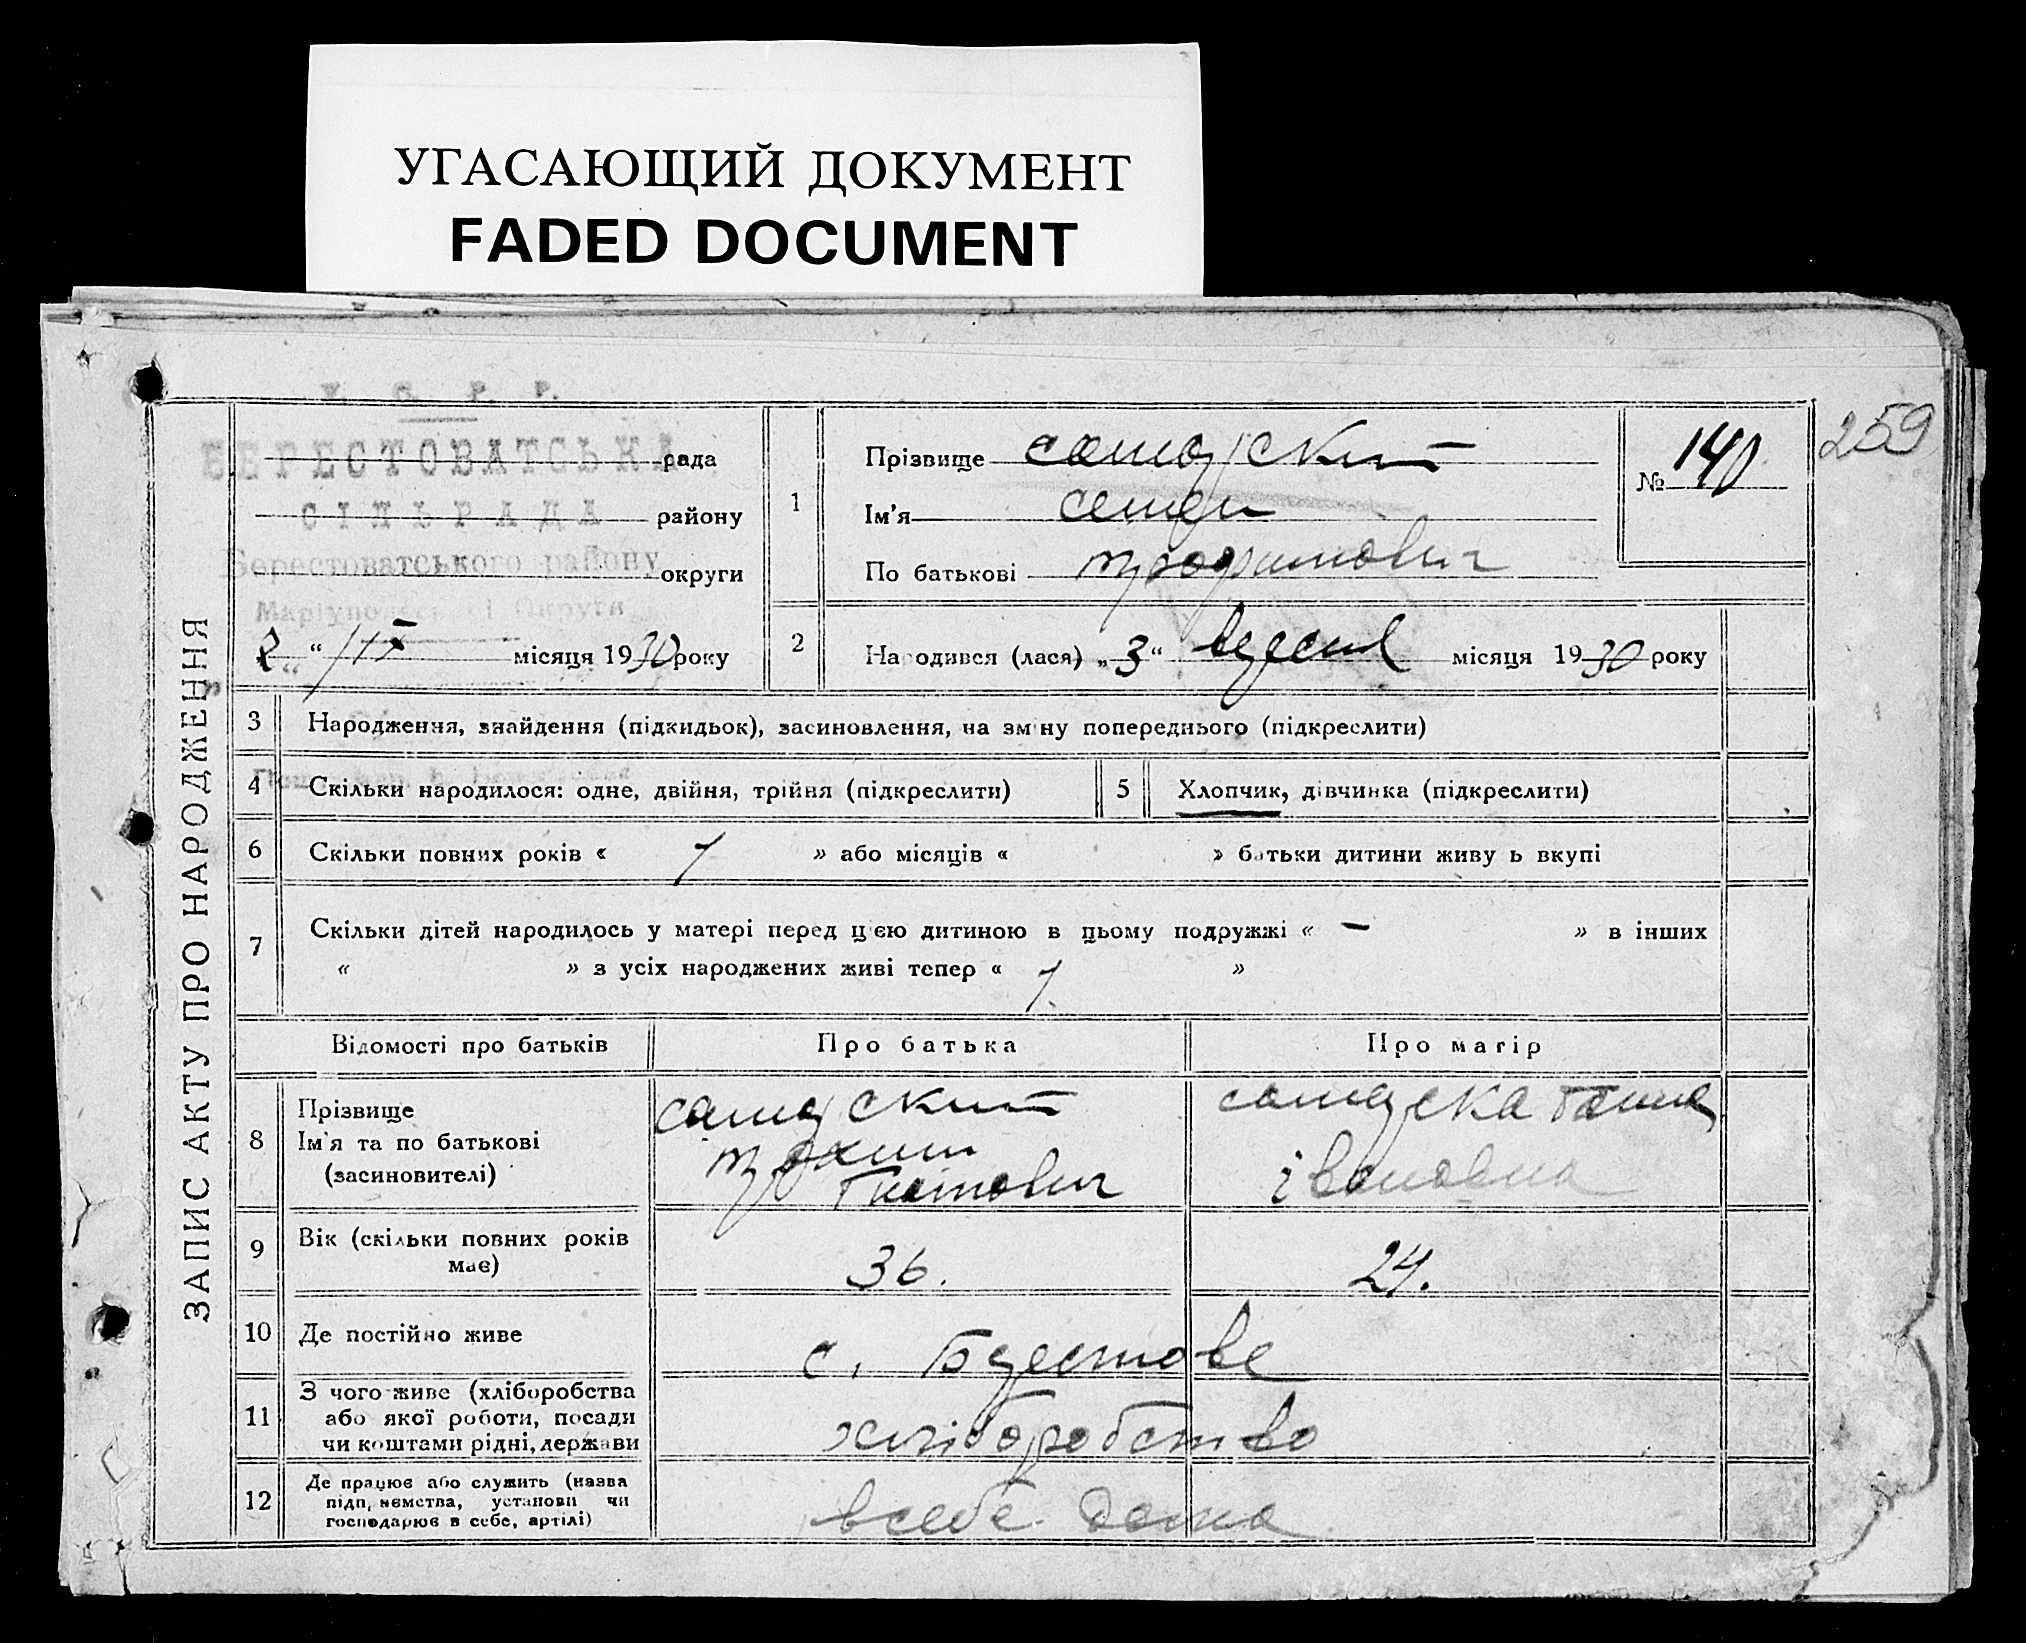 УГАСАЮЩИЙ ДОКУМЕНТ
FADED DOCUMENT
259
У. С. Р. Р.
БЕРЕСТОВАТСЬКА
рада
СІЛЬРАДА
району
Берестоватського району
округи
Маріупольської Округи
/IX місяця 1930 року
ЗАПИС АКТУ ПРО НАРОДЖЕННЯ
1
Прізвище
Ім'я
По батькові
№ 140
2 Народився (лася) „3“ вересня місяця 1930 року
3 Народження, знайдення (підкидьок), засиновлення, на зміну попереднього (підкреслити)
4 Скільки народилося: одне, двійня, трійня (підкреслити)
5 Хлопчик, дівчинка (підкреслити)
6 Скільки повних років « 1 » або місяців « » батьки дитини живуть вкупі
7 Скільки дітей народилось у матері перед цією дитиною в цьому подружжі « – » в інших
« » з усіх народжених живі тепер « 1. »
Відомості про батьків Про батька Про матір
8 Прізвище
Ім'я та по батькові
(засиновителі)
Гнатович
Ганна
івановна
9 Вік (скільки повних років має) 36. 24.
10 Де постійно живе с. Берестове
11 З чого живе (хліборобства
або якої роботи, посади
чи коштами рідні, держави
хліборобство
12 Де працює або служить (назва
підприємства, установи чи
господарює в себе, артілі)
всебе дома